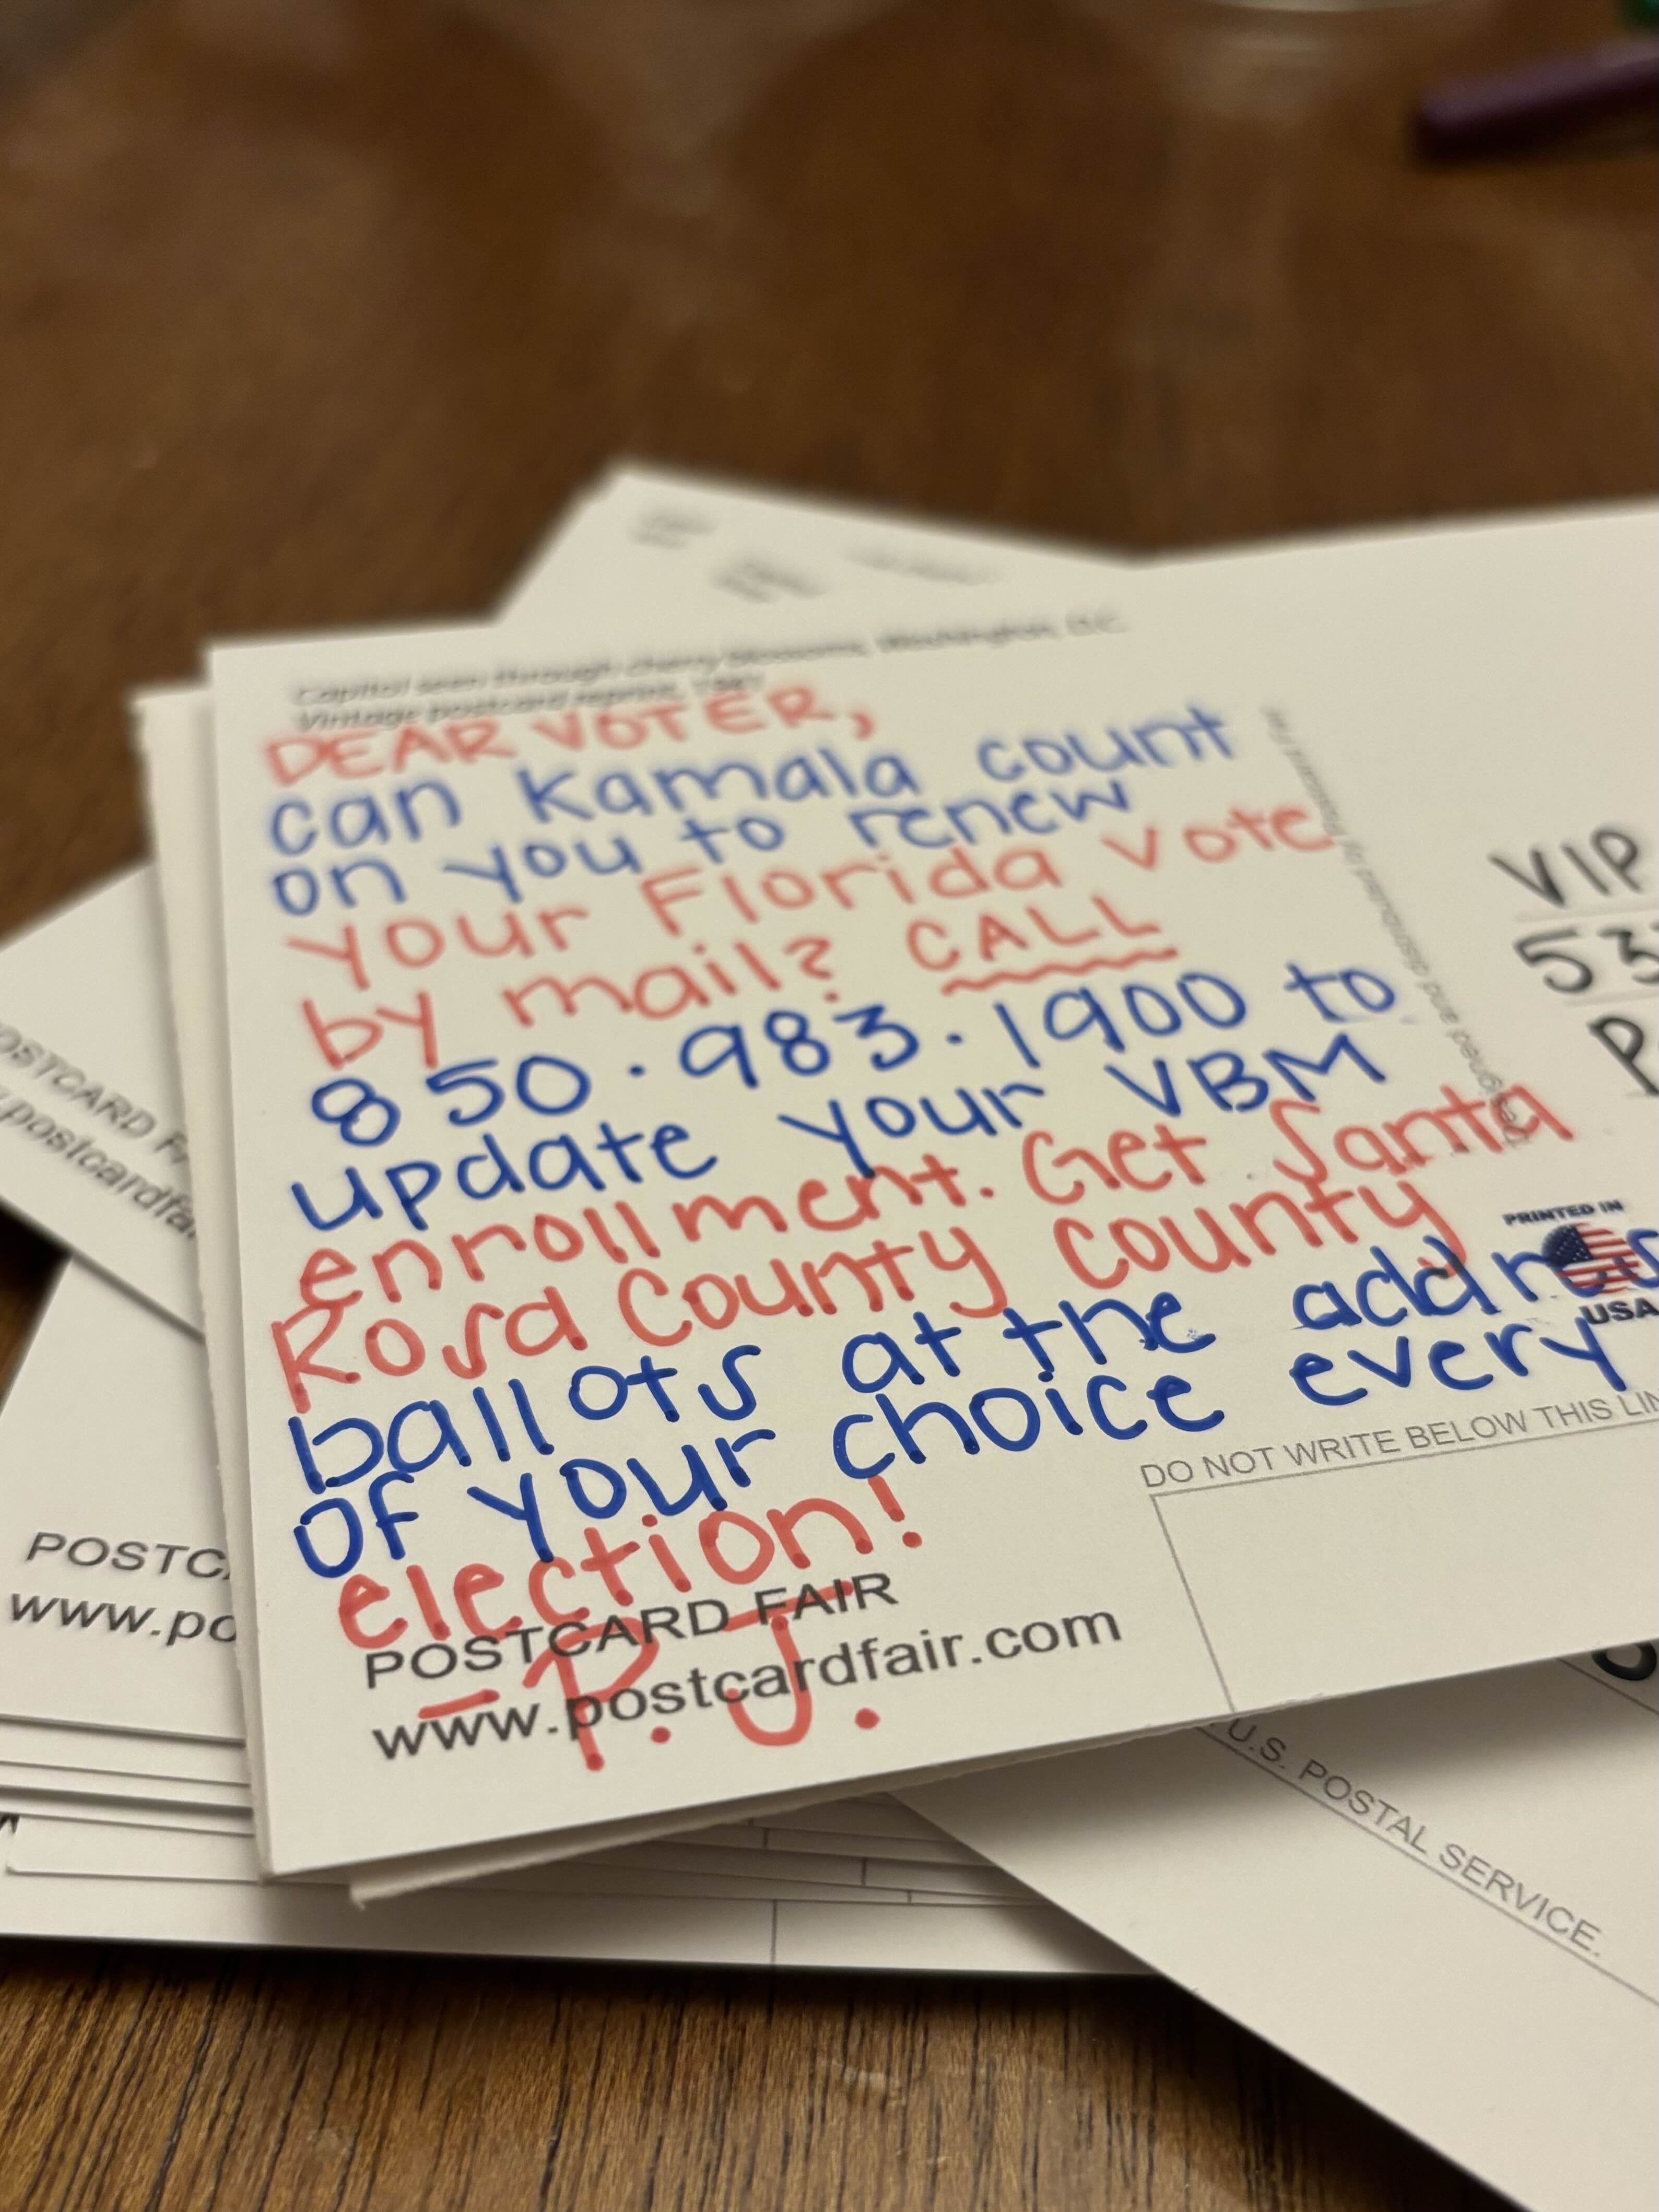 Capitol seen through cherry blossoms, Washington, D.C.
Vintage postcard reprint,
DEAR VOTER,
can Kamala count
on you to renew
your Florida vote
by mail? CALL
850.983.1900 to
update your VBM
enrollment. Get Santa
Rosa County county
ballots at the address
of your choice every
election!
- P.J.
POSTCARD FAIR
www.postcardfair.com
Designed and distributed by Postcard Fair
VIP
53
P
PRINTED IN
USA
DO NOT WRITE BELOW THIS LIN
POSTCARD FA
.postcardfai
POSTC
www.po
U.S. POSTAL SERVICE.